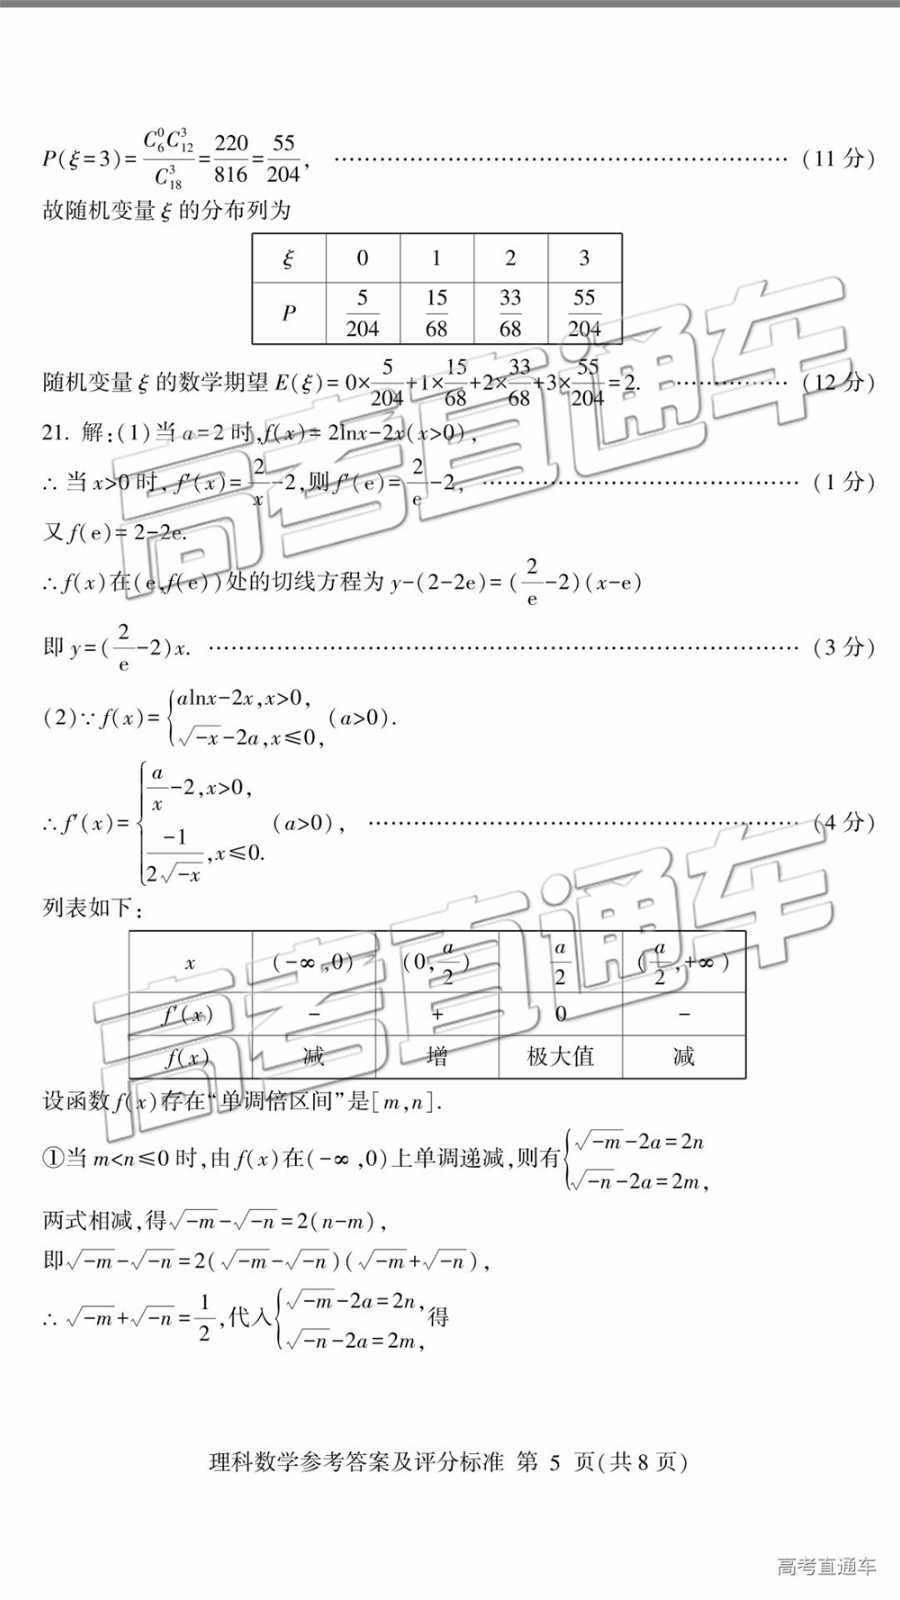 P(ξ=3)=\frac{C_6^0C_{12}^3}{C_{18}^3}=\frac{220}{816}=\frac{55}{204}, …………………………………………………… (11分)
故随机变量ξ的分布列为
ξ 0 1 2 3
P \frac{5}{204} \frac{15}{68} \frac{33}{68} \frac{55}{204}
随机变量ξ的数学期望E(ξ)=0×\frac{5}{204}+1×\frac{15}{68}+2×\frac{33}{68}+3×\frac{55}{204}=2. …………… (12分)
21. 解:(1)当a=2时,f(x)=2lnx-2x(x>0),
∴当x>0时,f′(x)=\frac{2}{x}-2,则f′(e)=\frac{2}{e}-2, …………………………………… (1分)
又f(e)=2-2e.
∴f(x)在(e,f(e))处的切线方程为y-(2-2e)=(\frac{2}{e}-2)(x-e)
即y=(\frac{2}{e}-2)x. …………………………………………………………………… (3分)
(2)∵f(x)=\begin{cases}alnx-2x,x>0,\\\sqrt{-x}-2a,x≤0,\end{cases}(a>0).
∴f′(x)=\begin{cases}\frac{a}{x}-2,x>0,\\\frac{-1}{2\sqrt{-x}},x≤0.\end{cases}(a>0), ………………………………………………… (4分)
列表如下:
x (-∞,0) (0,\frac{a}{2}) \frac{a}{2} (\frac{a}{2},+∞)
f′(x) - + 0 -
f(x) 减 增 极大值 减
设函数f(x)存在“单调倍区间”是[m,n].
①当m<n≤0时,由f(x)在(-∞,0)上单调递减,则有\begin{cases}\sqrt{-m}-2a=2n\\\sqrt{-n}-2a=2m,\end{cases}
两式相减,得\sqrt{-m}-\sqrt{-n}=2(n-m),
即\sqrt{-m}-\sqrt{-n}=2(\sqrt{-m}-\sqrt{-n})(\sqrt{-m}+\sqrt{-n}),
∴\sqrt{-m}+\sqrt{-n}=\frac{1}{2},代入\begin{cases}\sqrt{-m}-2a=2n,\\\sqrt{-n}-2a=2m,\end{cases}得
理科数学参考答案及评分标准 第 5 页(共8页)
高考直通车
高考直通车
高考直通车